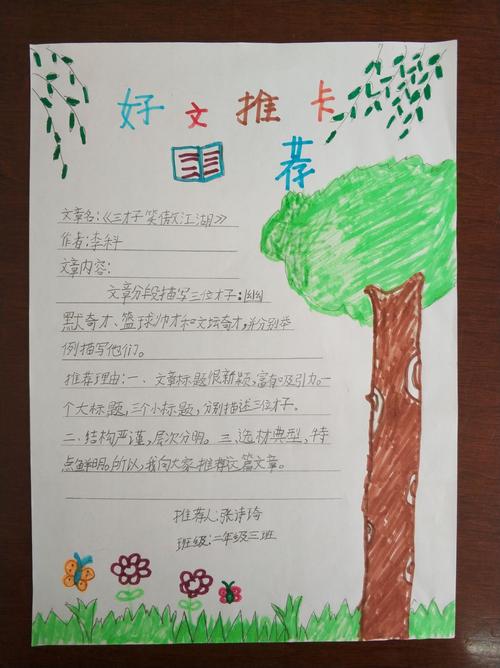 好文推卡
荐
文章名:《三才子笑傲江湖》
作者:李科
文章内容:
文章分段描写三位才子:幽幽
默奇才、篮球帅才和文坛奇才,并分别举
例描写他们。
推荐理由:一、文章标题很新颖,富有吸引力。一
个大标题,三个小标题,分别描述三位才子。
二、结构严谨,层次分明。三、选材典型,特
点鲜明。所以,我向大家推荐这篇文章。
推荐人:张诗琦
班级:二年级三班